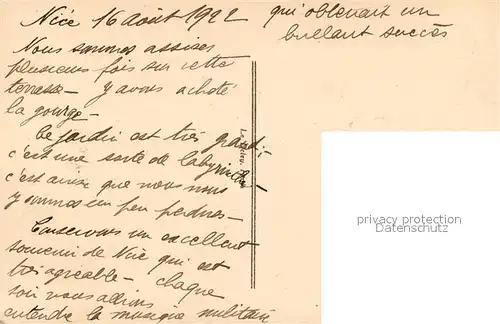 Nice 16 août 1922
Nous sommes assises
plusieurs fois sur cette
terrasse - y avons acheté
la gourge -
Ce jardin est très grand;
c'est une sorte de labyrinthe
c'est ainsi que nous nous
y sommes un peu perdues -
Conservons un excellent
souvenir de Nice qui est
très agréable - chaque
soir nous allions
entendre la musique militaire
qui obtenait un
brillant succès
privacy protection
Datenschutz